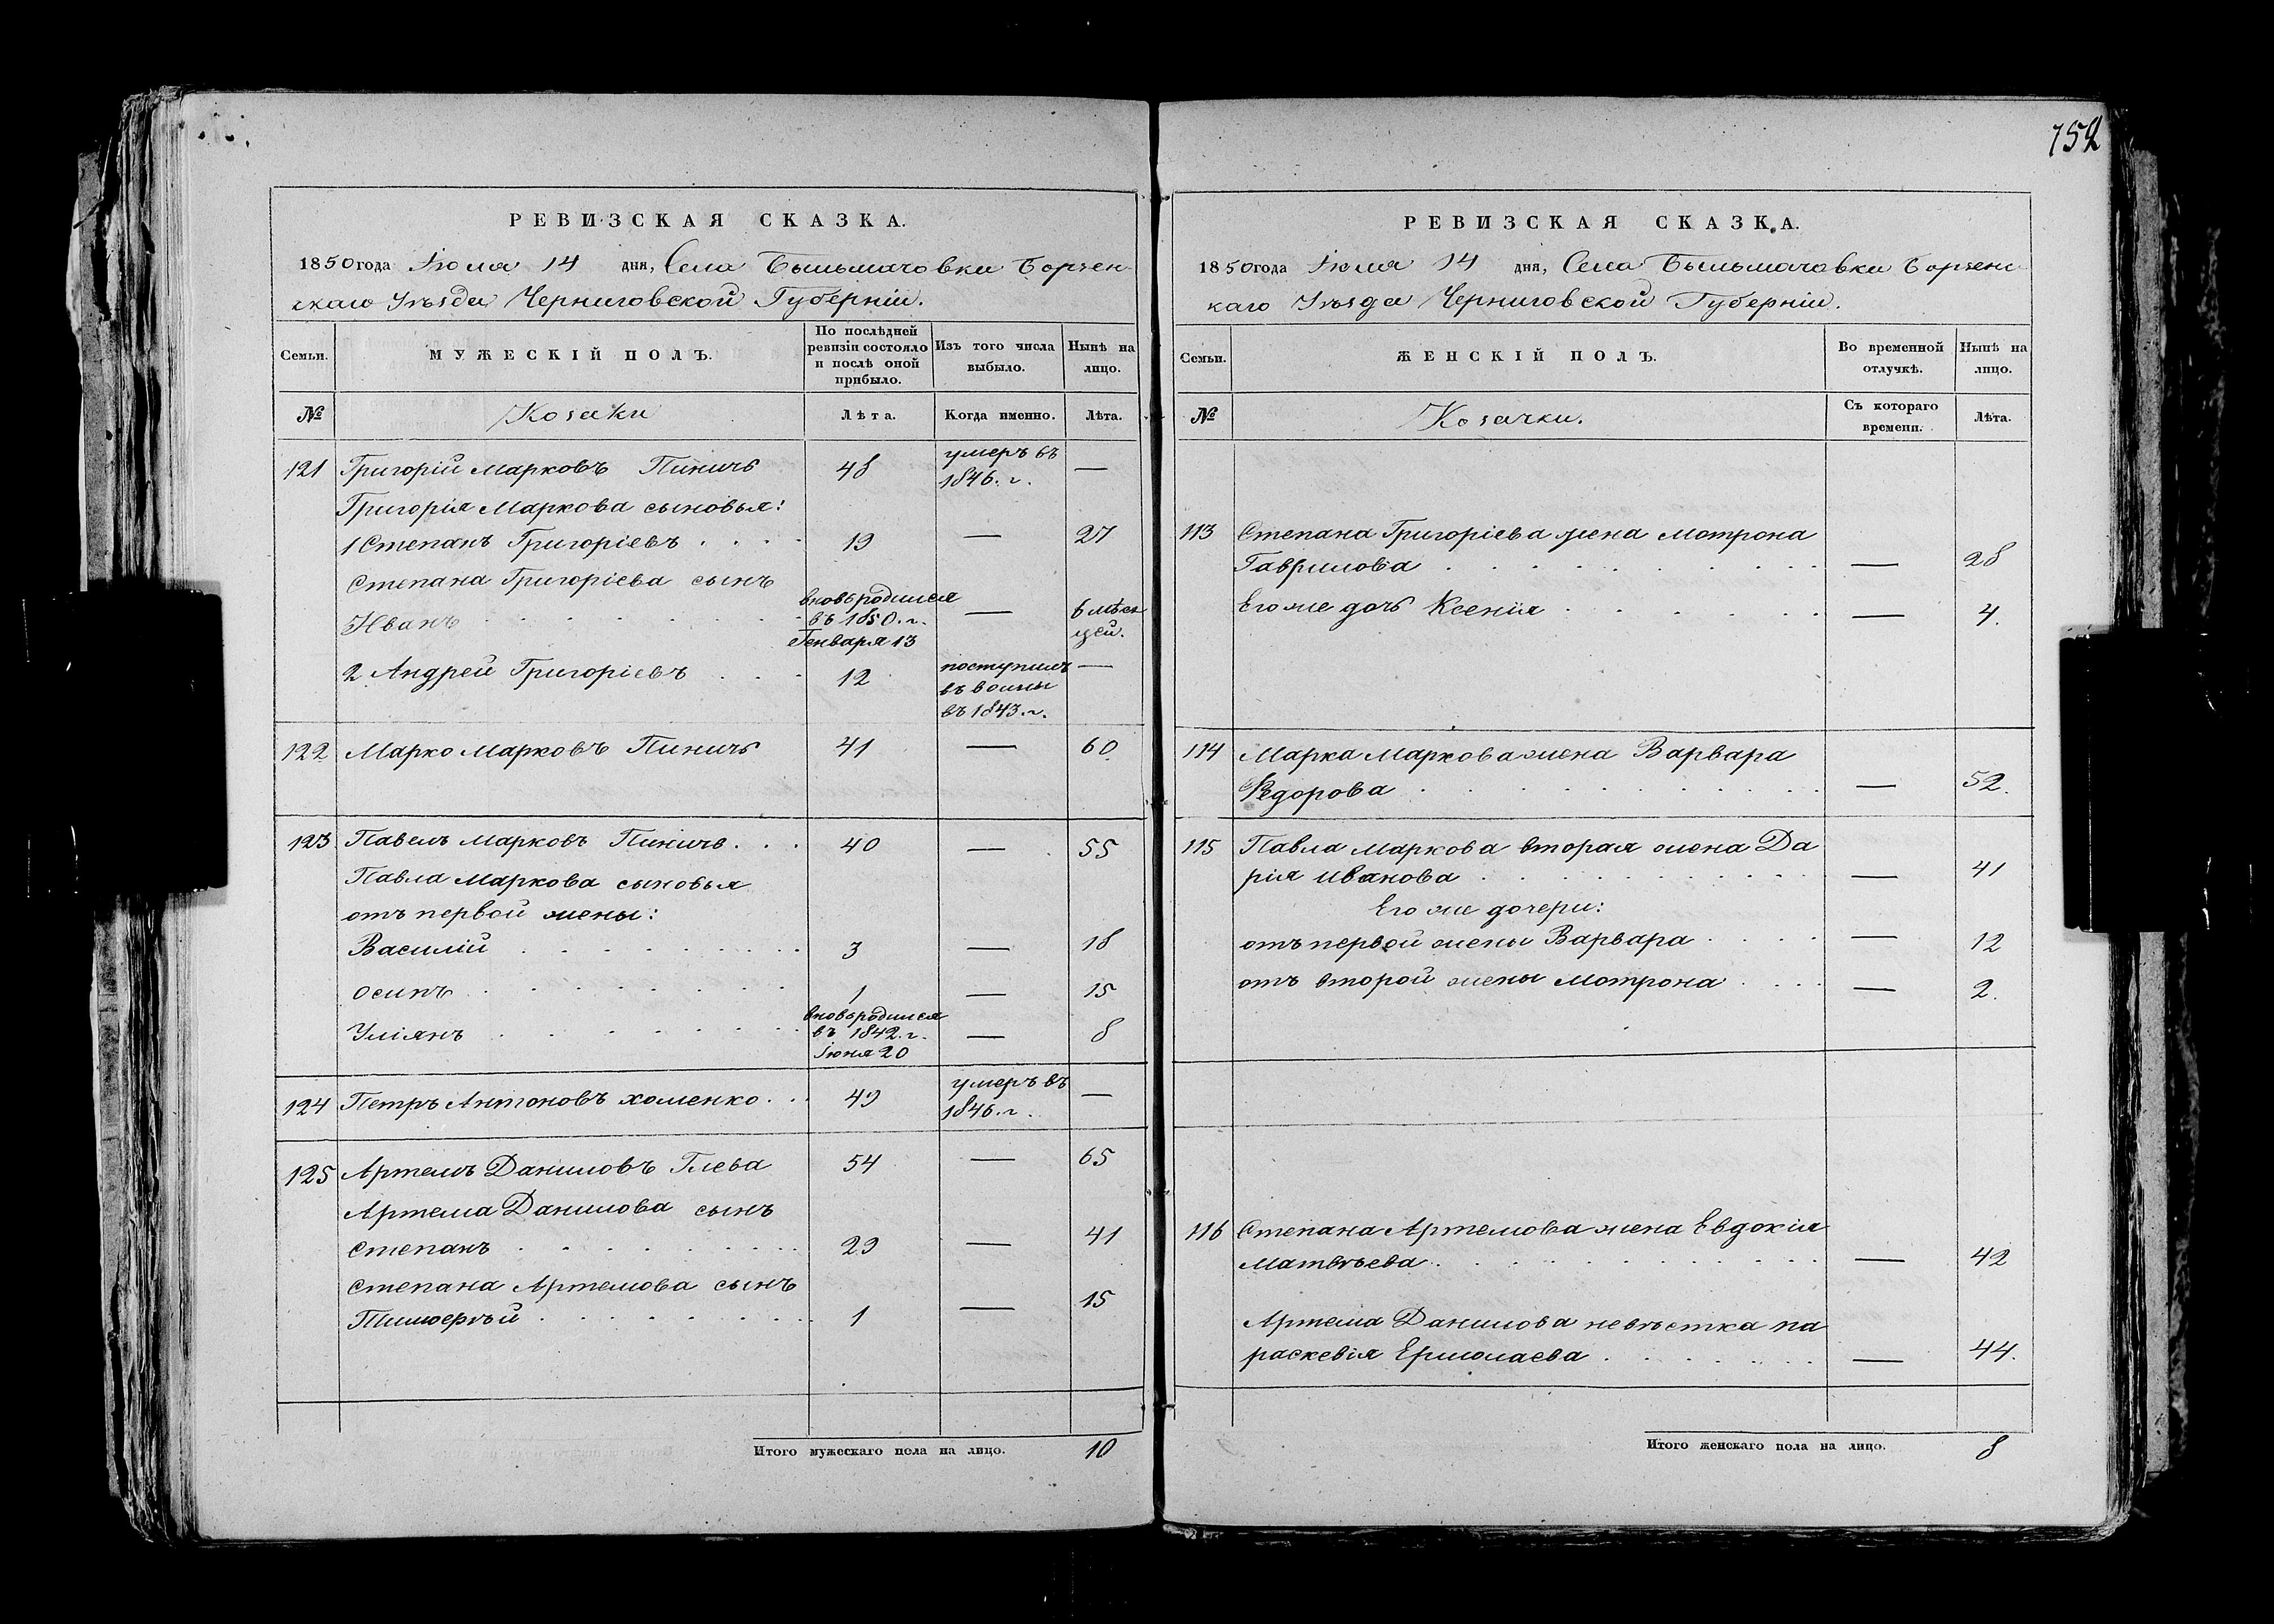 752
РЕВИЗСКАЯ СКАЗКА.
1850 года Іюля 14 дня, Села Бильмачовки Борзен-
скаго Уѣзда Черниговской Губерніи.
Семьи.
МУЖЕСКІЙ ПОЛЪ.
По послѣдней
ревизіи состояло
и послѣ оной
прибыло.
Изъ того числа
выбыло.
Нынѣ на
лицо.
№
Козаки
Лѣта.
Когда именно.
Лѣта.
121 Григорій Марковъ Пиничъ 48 умеръ въ 1846. г. —
Григорія Маркова сыновья:
1 Степанъ Григоріевъ . . . . 19 — 27
Степана Григорьева сынъ
Иванъ . . . . . . . . вновь родился въ 1850. г. Генваря 13 — 6 мѣся цей.
2 Андрей Григоріевъ . . . 12 поступилъ въ воины въ 1843. г. —
122 Марко Марковъ Пиничъ 41 — 60.
123 Павелъ Марковъ Пиничъ . . . 40 — 55
Павла Маркова сыновья
отъ первой жены:
Василій . . . . . . . . 3 — 18
Осипъ . . . . . . . . 1 — 15
Уліянъ . . . . . . . . вновь родился въ 1842. г. Іюня 20 — 8
124 Петръ Антоновъ Хоменко . . . 49 умеръ въ 1846. г. —
125 Артемъ Даниловъ Глева 54 — 65
Артема Данилова сынъ
Степанъ . . . . . . . . 29 — 41
Степана Артемова сынъ
Тимофѣй . . . . . . . . 1 — 15
Итого мужескаго пола на лицо. 10
РЕВИЗСКАЯ СКАЗКА.
1850 года Іюля 14 дня, Села Бильмачовки Борзенс
каго Уѣзда Черниговской Губерніи.
Семьи.
ЖЕНСКІЙ ПОЛЪ.
Во временной
отлучкѣ.
Нынѣ на
лицо.
№
Козачки.
Съ котораго
времени.
Лѣта.
113 Степана Григоріева жена Мотрона
Гаврилова . . . . . . . . — 28
Его же дочь Ксенія . . . . . . — 4.
114 Марка Маркова жена Варвара
Федорова . . . . . . . . — 52.
115 Павла Маркова вторая жена Да
рія Иванова . . . . . . . . — 41
Его же дочери:
отъ первой жены Варвара . . . . — 12
отъ второй жены Мотрона . . . . — 2.
116 Степана Артемова жена Евдокія
Матвѣева . . . . . . . . — 42
Артема Данилова невѣстка Па
раскевія Ермолаева . . . . . . — 44.
Итого женскаго пола на лицо. 8